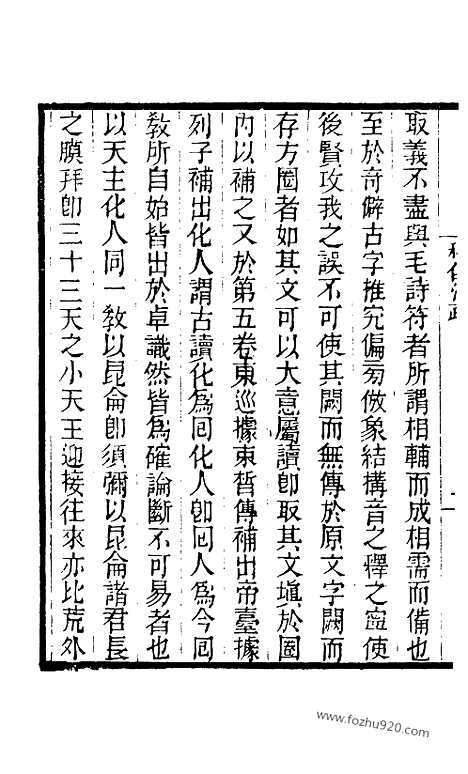 取義不盡與毛詩符者所謂相輔而成相需而備也
至於奇僻古字推究偏旁倣象結構音之釋之寍使
後賢攻我之誤不可使其闕而無傳於原文字闕而
存方圈者如其文可以大意屬讀卽取其文塡於圈
內以補之又於第五卷東巡據束晳傳補出帝臺據
列子補出化人謂古讀化爲回化人卽回人爲今回
敎所自始皆出於卓識然皆爲確論斷不可易者也
以天主化人同一敎以昆侖卽須彌以昆侖諸君長
之膜拜卽三十三天之小天王迎接往來亦比荒外
www.fozhu920.com